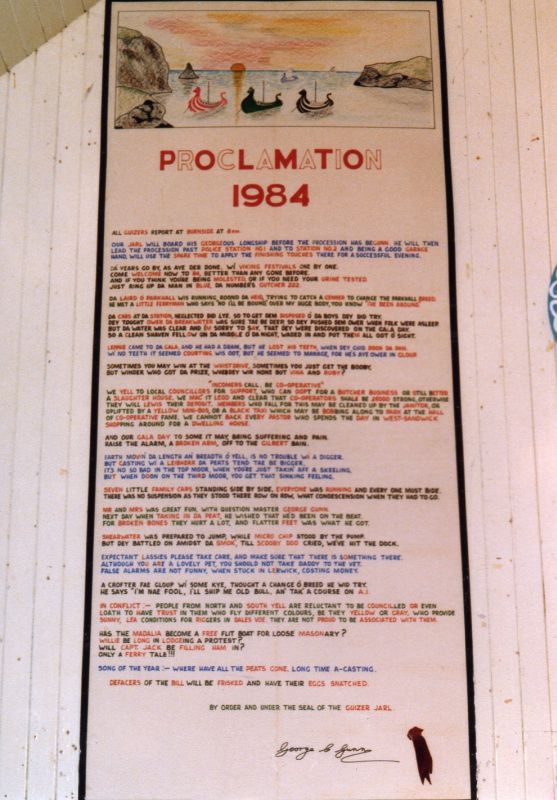 PROCLAMATION
1984
ALL GUIZERS REPORT AT BURNSIDE AT 8PM.
OUR JARL WILL BOARD HIS GEORGEOUS LONGSHIP BEFORE THE PROCESSION HAS BEGUNN. HE WILL THEN
LEAD THE PROCESSION PAST POLICE STATION NO1 AND TO STATION NO.2 AND BEING A GOOD GARAGE
HAND, WILL USE THE SPARE TIME TO APPLY THE FINISHING TOUCHES THERE FOR A SUCCESSFUL EVENING.
DA YEARS GO BY, AS AYE DER DONE, WI VIKING FESTIVALS ONE BY ONE.
COME WELCOME NOW TO 84, BETTER THAN ANY GONE BEFORE.
AND IF YOU THINK YOU'RE BEING MOLESTED, OR IF YOU NEED YOUR URINE TESTED,
JUST RING UP DA MAN IN BLUE, DA NUMBER'S CUTCHER 222.
DA LAIRD O PARKHALL WIS RUNNING, ROOND DA HEID, TRYING TO CATCH A GENNER TO CHANGE THE PARKHALL BREED
HE MET A LITTLE FERRYMAN WHO SAYS 'NO I'LL BE BOUND' OVER MY HUGE BODY, YOU KNOW "I'VE BEEN AROUND"
DA CARS AT DA STATION, NEGLECTED DID LYE, SO TO GET DEM DISPOSED O DA BOYS DEY DID TRY.
DEY TOUGHT OWER DA BREAKWATER WAS SURE TAE BE DEEP, SO DEY PUSHED DEM OWER WHEN FOLK WERE ASLEEP
BUT DA WATER WAS CLEAR AND I'M SORRY TO SAY, THAT DEY WERE DISCOVERED ON THE GALA DAY.
SO A CLEAN SHAVEN FELLOW UN DA MIDDLE O DA NIGHT, WADED IN AND PUT THEM ALL OOT O SIGHT.
LENNIE CAME TO DA GALA, AND HE HAD A DRAM, BUT HE LOST HIS TEETH, WHEN DEY GUID DOON DA PAN.
WI NO TEETH IT SEEMED COURTING WIS OOT, BUT HE SEEMED TO MANAGE, FOR HE'S AYE OWER IN GLOUP
SOMETIMES YOU MAY WIN AT THE WHIST DRIVE, SOMETIMES YOU JUST GET THE BOOBY,
BUT WINDER WHO GOT DA PRIZE, WHEDDEY WIR NONE BUT VINA AND RUBY?
"INCOMERS CALL, BE CO-OPERATIVE"
WE YELL TO LOCAL COUNCILLORS FOR SUPPORT, WHO CAN OOPT FOR A BUTCHER BUSINESS OR STILL BETTER
A SLAUGHTER HOUSE. WE MAC IT LEGO AND CLEAR THAT CO-OPERATORS SHALL BE 28000 STRONG, OTHERWISE
THEY WILL LEWIS THEIR DEPOSIT. MEMBERS WHO FALL FOR THIS MAY BE CLEANED UP BY THE JANITOR, OR
UPLIFTED BY A YELLOW MINI-BUS, OR A BLACK TAXI WHICH MAY BE BOBBING ALONG TO PARK AT THE HALL
OF CO-OPERATIVE FAME. WE CANNOT BACK EVERY PASTOR WHO SPENDS THE DAY IN WEST-SANDWICK
SHOPPING AROUND FOR A DWELLING HOUSE.
AND OUR GALA DAY TO SOME IT MAY BRING SUFFERING AND PAIN.
RAISE THE ALARM, A BROKEN ARM, OFF TO THE GILBERT BAIN.
EARTH MOVIN' DA LENGTH AN' BREADTH O YELL, IS NO TROUBLE WI A DIGGER.
BUT CASTING WI A LEIBHERR DA PEATS TEND TAE BE BIGGER,
IT'S NO SO BAD IN THE TOP MOOR, WHEN YOU'RE JUST TAKIN' AFF A SKEELING,
BUT WHEN DOON ON THE THIRD MOOR, YOU GET THAT SINKING FEELING.
SEVEN LITTLE FAMILY CARS STANDING SIDE BY SIDE, EVERYONE WAS RUNNING AND EVERY ONE MUST BIDE.
THERE WAS NO SUSPENSION AS THEY STOOD THERE ROW ON ROW, WHAT CONDESCENSION WHEN THEY HAD TO GO.
MR AND MRS WAS GREAT FUN, WITH QUESTION MASTER GEORGE GUNN.
NEXT DAY WHEN TAKING IN DA PEAT, HE WISHED THAT HE'D BEEN ON THE BEAT.
FOR BROKEN BONES THEY HURT A LOT, AND FLATTER FEET WAS WHAT HE GOT.
SHEARWATER WAS PREPARED TO JUMP, WHILE MICRO CHIP STOOD BY THE PUMP.
BUT DEY BATTLED ON AMIDST DA SMOK', TILL SCOOBY DOO CRIED, WE'VE HIT THE DOCK.
EXPECTANT LASSIES PLEASE TAKE CARE, AND MAKE SURE THAT THERE IS SOMETHING THERE.
ALTHOUGH YOU ARE A LOVELY PET, YOU SHOULD NOT TAKE DADDY TO THE VET.
FALSE ALARMS ARE NOT FUNNY, WHEN STUCK IN LERWICK, COSTING MONEY.
A CROFTER FAE GLOUP WI SOME KYE, THOUGHT A CHANGE O BREED HE WID TRY.
HE SAYS "I'M NAE FOOL, I'LL SHIP ME OLD BULL, AN' TAK' A COURSE ON A.I.
IN CONFLICT :- PEOPLE FROM NORTH AND SOUTH YELL ARE RELUCTANT TO BE COUNCILLED OR EVEN
LOATH TO HAVE TRUST IN THEM WHO FLY DIFFERENT COLOURS, BE THEY YELLOW OR GRAY, WHO PROVIDE
SUNNY, LEA CONDITIONS FOR RIGGERS IN DALES VOE. THEY ARE NOT PROUD TO BE ASSOCIATED WITH THEM.
HAS THE MADALIA BECOME A FREE FLIT BOAT FOR LOOSE MASONARY?
WILLIE BE LONG IN LODGEING A PROTEST.
WILL CAPT. JACK BE FILLING HAM IN?
ONLY A FERRY TALE!!!
SONG OF THE YEAR :- WHERE HAVE ALL THE PEATS GONE, LONG TIME A-CASTING.
DEFACERS OF THE BILL WILL BE FRISKED AND HAVE THEIR EGGS SNATCHED.
BY ORDER AND UNDER THE SEAL OF THE GUIZER JARL.
George C Gunn